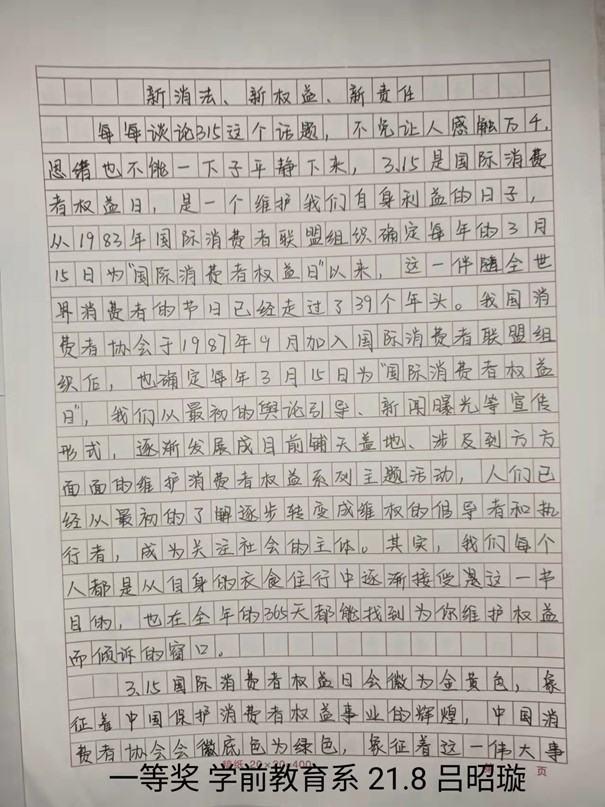 新消法、新权益、新责任
每每谈论315这个话题，不免让人感触万千，
思绪也不能一下子平静下来，3.15是国际消费
者权益日，是一个维护我们自身利益的日子，
从1983年国际消费者联盟组织确定每年的3月
15日为"国际消费者权益日"以来，这一伴随全世
界消费者的节日已经走过了39个年头。我国消
费者协会于1987年9月加入国际消费者联盟组
织后，也确定每年3月15日为"国际消费者权益
日"，我们从最初的舆论引导、新闻曝光等宣传
形式，逐渐发展成目前铺天盖地、涉及到方方
面面的维护消费者权益系列主题活动，人们已
经从最初的了解逐步转变成维权的倡导者和执
行者，成为关注社会的主体。其实，我们每个
人都是从自身的衣食住行中逐渐接受着这一节
目的，也在全年的365天都能找到为你维护权益
而倾诉的窗口。
3.15国际消费者权益日会徽为金黄色，象
征着中国保护消费者权益事业的辉煌，中国消
费者协会会徽底色为绿色，象征着这一伟大事
20×20=400
页
一等奖 学前教育系 21.8 吕昭璇